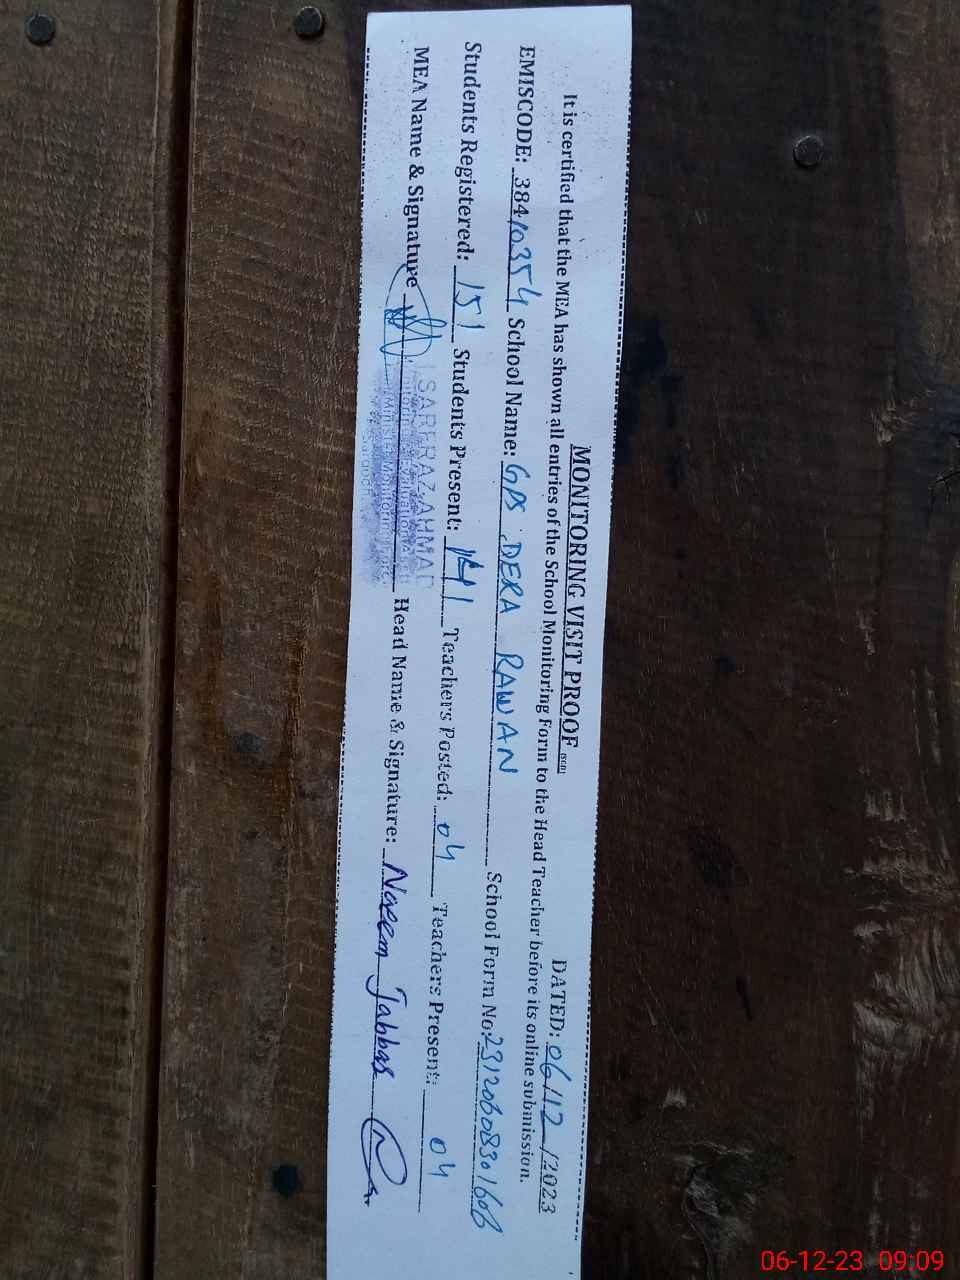 MONITORING VISIT PROOF
DATED: 06/12/2023
It is certified that the MEA has shown all entries of the School Monitoring Form to the Head Teacher before its online submission.
EMISCODE: 38410354 School Name: GPS DERA RAWAN School Form No: 2312060830160B
Students Registered: 151 Students Present: 141 Teachers Posted: 04 Teachers Present: 04
MEA Name & Signature Head Name & Signature: Naeem Jabbar
SARFRAZ AHMAD
06-12-23 09:09